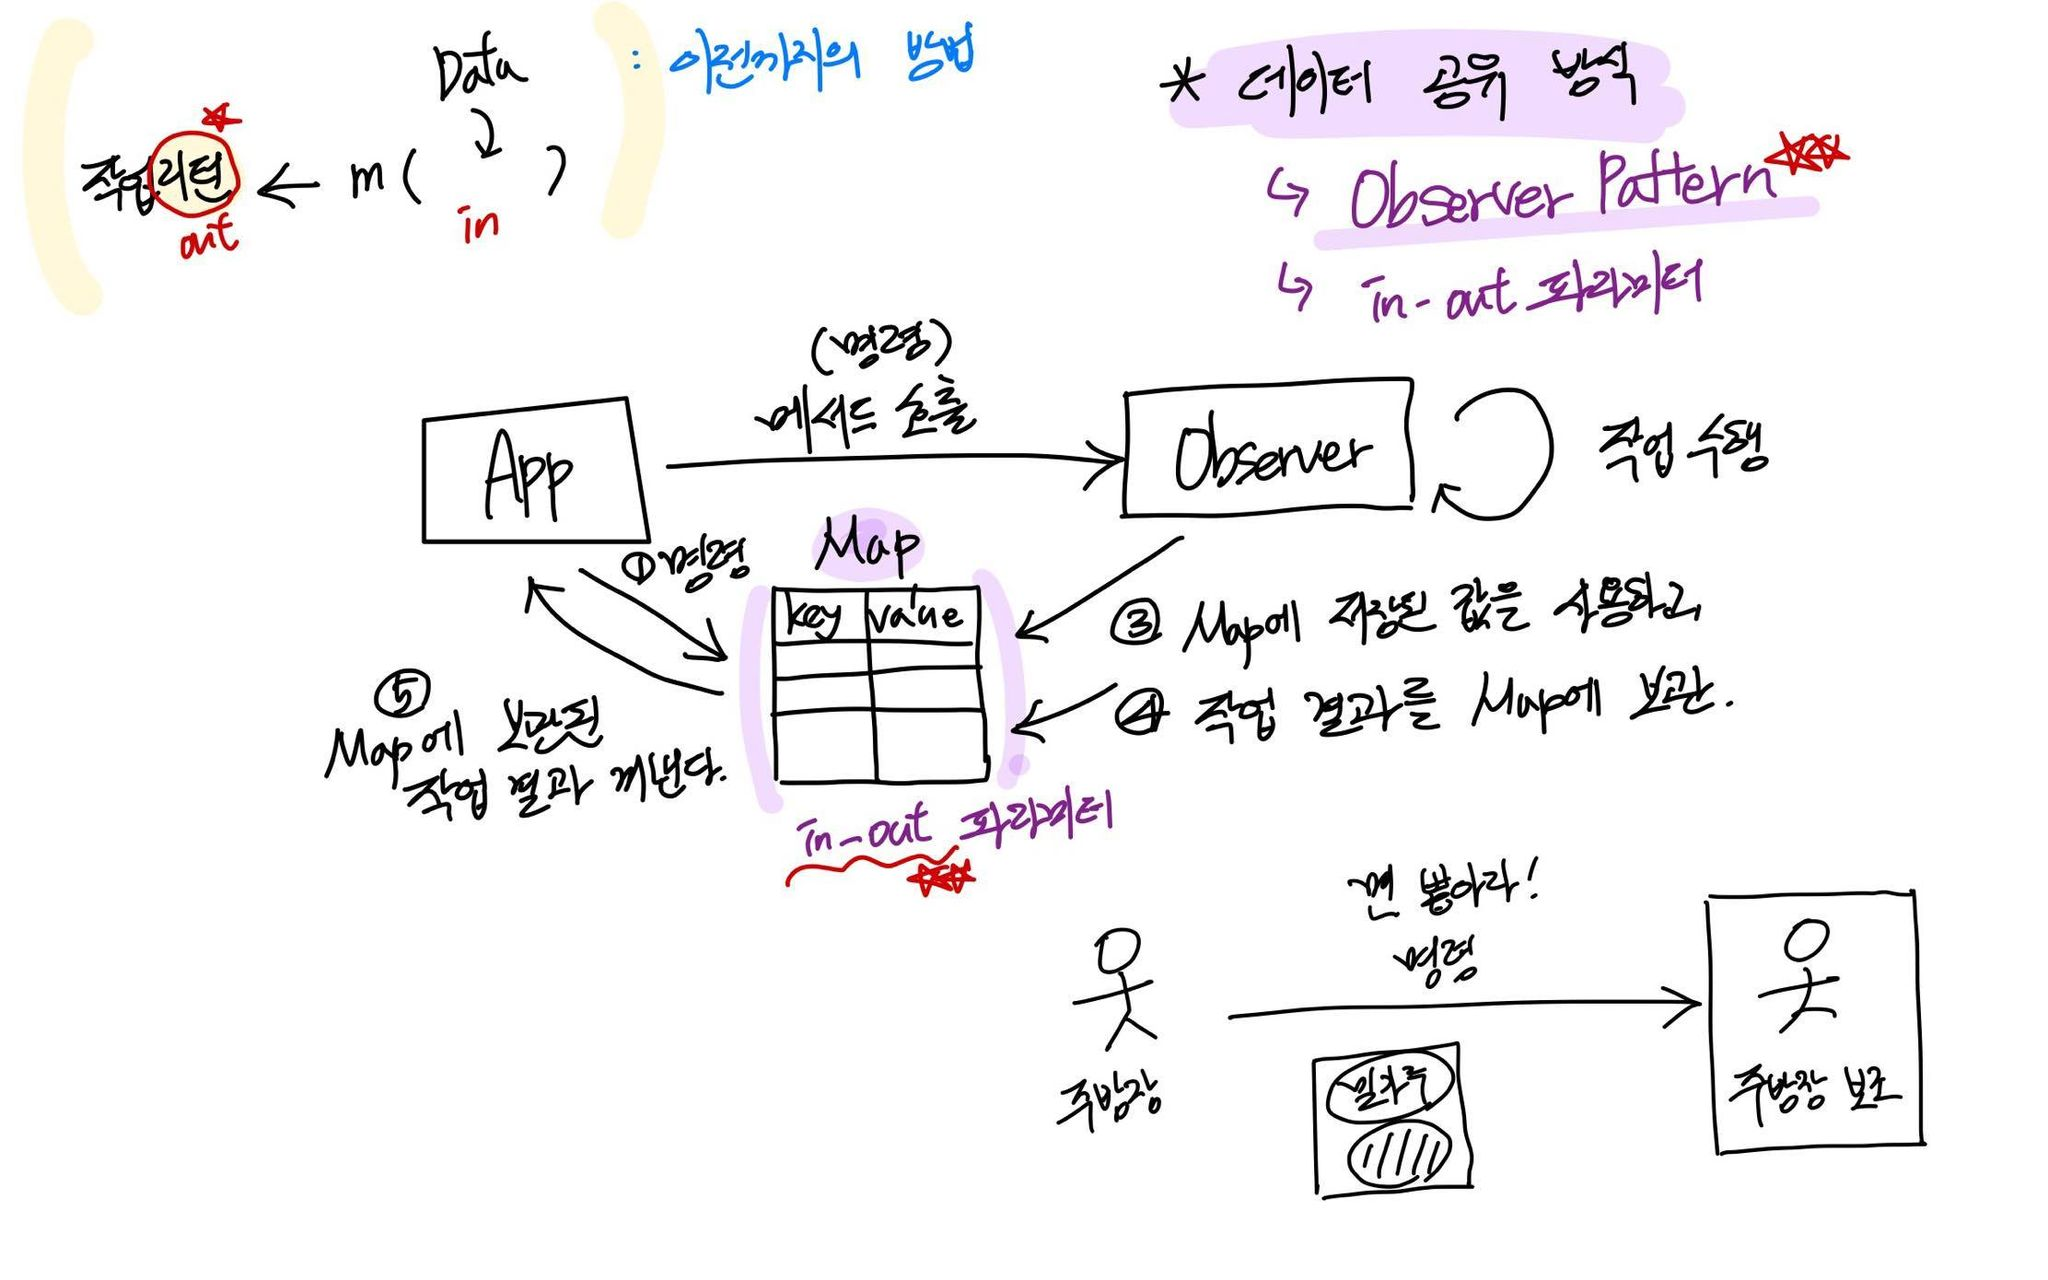 Data : 이전까지의 방법
작업리턴 ← m ( )
out
in
* 데이터 공유 방식
↳ Observer Pattern
↳ in-out 파라미터
(명령)
메서드 호출
App
Observer
작업 수행
① 명령
Map
key value
③ Map에 저장된 값을 사용하고,
④ 작업 결과를 Map에 보관.
⑤
Map에 보관된
작업 결과 꺼낸다.
in-out 파라미터
면 뽑아라!
명령
주방장
밀가루
주방장 보조